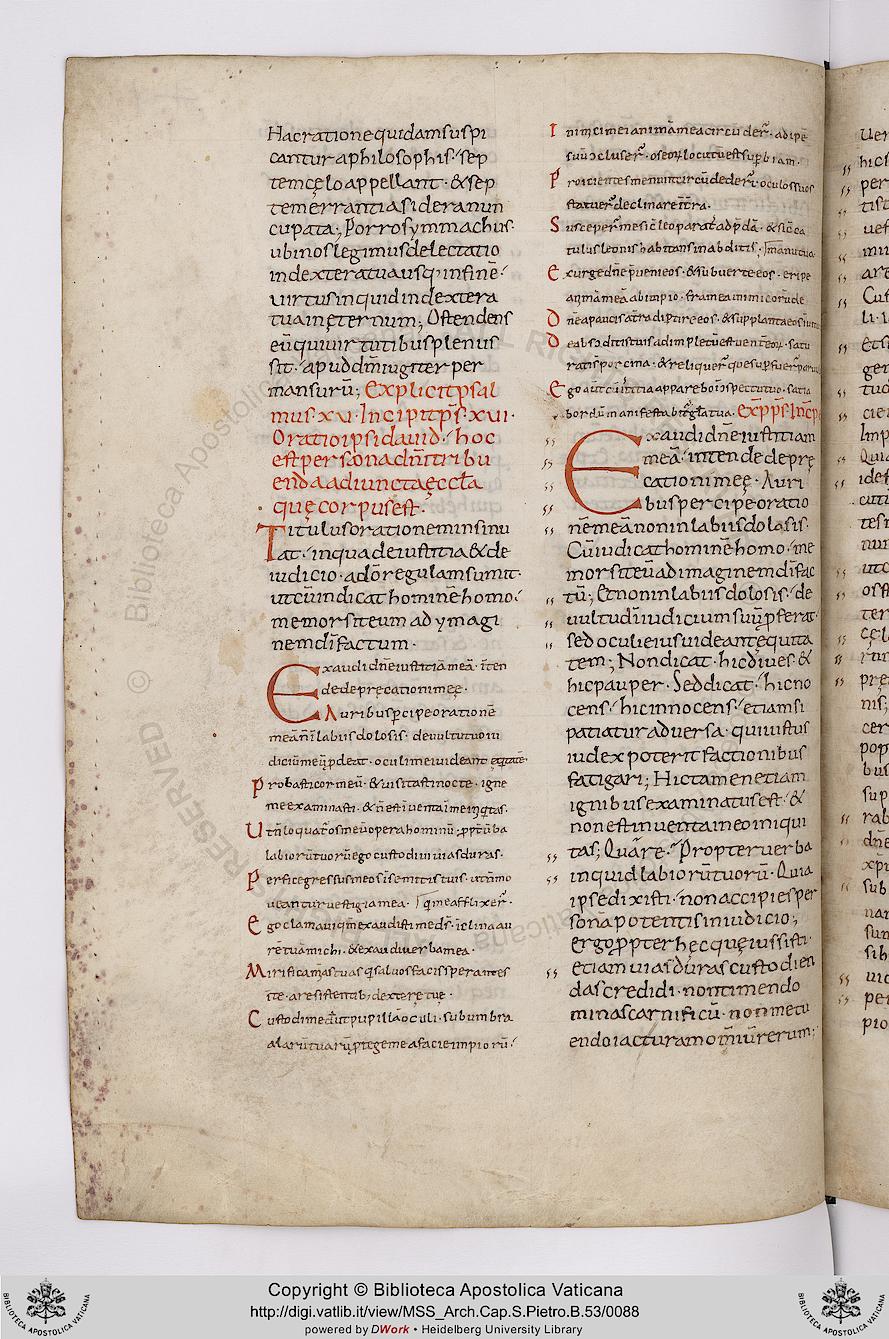 Hac ratione quidam suspi
cantur a philosophis · sep
tem cęlo appellant · & sep
tem errantia sidera nun
cupata; Porro symmachus ·
ubi nos legimus delectatio
in dextera tua usq; in finē ·
uirtus inquid in dextera
tua in ęternum; Ostendens
eū qui uirtutibus plenus
sit · apud dn̄m iugiter per
mansurū; Explicit psal
mus xvi · Incipit ps̄ xvi ·
Oratio ipsi dauid · hoc
est persona dn̄i tribu
enda adiuncta ęccl̄a
quę corpus est ·
Titulus orationem insinu
at · in qua de iustitia & de
iudicio · ad ō regulam sumit ·
ut cū iudicat hominē homo ·
memor sit eum ad ymagi
nem dī factum ·
Exaudi dn̄e iustitiā meā · īten
de deprecationi meę ·
Auribus p̄cipe orationē
meā n̄ ī labiis dolosis · de uultu tuo iu
diciū meū p̄deat · oculi mei uideant equitatē ·
Probasti cor meū · & uisitasti nocte · igne
me examinasti · & n̄ est īuenta ī me iniq̄tas ·
Ut n̄ loquat̄ os meū opera hominū · ppt̄ uba
labiorū tuorū ego custodiui uias duras ·
Perfice gressus meos ī semitis tuis · ut n̄ mo
ueantur uestigia mea · q̄ me afflixer̄ ·
Ego clamaui qm̄ exaudisti me ds̄ · īclina au
rē tuā michi · & exaudi uerba mea ·
Mirifica mās tuas q̄ saluos facis sperantes
ī te · a resistentib; dexterę tuę ·
Custodi me d̄ ut pupillā oculi · sub umbra
alarū tuarū ptege me a facie impiorū ·
Inimici mei animā meā circūder̄ · adipē
suū cluser̄ · os eoꝝ locutū est supbiam ·
Proicientes me nunc circūdeder̄ · oculos suos
statuer̄ declinare ī t̄rā ·
Susceper̄ me sic̄ leo parat̄ ad p̄dā · & sic̄ ca
tulus leonis habitans in abditis ·
Exurge dn̄e pueni eos · & subuerte eos · eripe
animā meā ab impio · frameā inimicorū de
Dn̄e a paucis a t̄ra diptire eos · & supplanta eos
De absconditis tuis adimpletus est uent̄ eoꝝ · satu
rati s̄ porcina · & reliquer̄ que supfuer̄
Ego aut̄ cū iustitia apparebo ī conspectu tuo · satia
bor dū manifestabit̄ gl̄a tua · Exp ps̄ Incp
Exaudi dn̄e iustitiam
meā · intende depre
cationi meę · Auri
bus percipe oratio
nē meā non in labiis dolosis ·
Cū iudicat hominē homo · me
mor sit eū ad imaginem dī fac
tū; Et non in labiis dolosis · de
uultu dn̄i iudicium suū pferat ·
sed oculi eius uideant ęquita
tem; Non dicat · hic diues · &
hic pauper · Sed dicat · hic no
cens · hic innocens · etiam si
patiatur aduersa · qui iustus
iudex poterit factionibus
fatigari; Hic tamen etiam
ignibus examinatus est · &
non est inuenta in eo iniqui
tas; Quare · Propter uerba
inquid labiorū tuorū · Quia
ipse dixisti · non accipies per
sonā potentis in iudicio;
ergo ppter hęc quę iussisti ·
etiam uias duras custodien
das credidi · non timendo
minas carnificū · non metu
endo iacturam omīū rerum;
Copyright © Biblioteca Apostolica Vaticana
http://digi.vatlib.it/view/MSS_Arch.Cap.S.Pietro.B.53/0088
powered by DWork • Heidelberg University Library